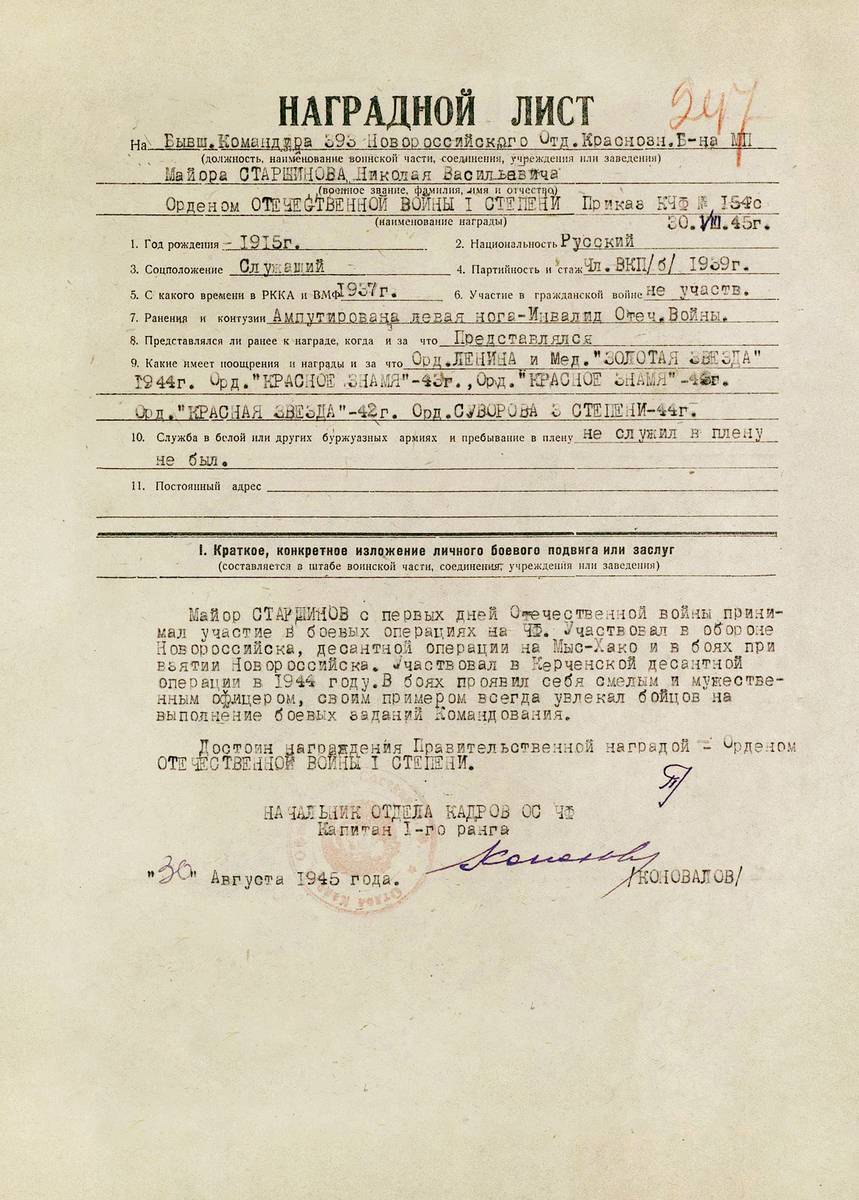 247
НАГРАДНОЙ ЛИСТ
На Бывш.Командира 393 Новороссийского Отд.Краснозн.Б-на МП
(должность, наименование воинской части, соединения, учреждения или заведения)
Майора СТАРШИНОВА Николая Васильевича
(военное звание, фамилия, имя и отчество)
Орденом ОТЕЧЕСТВЕННОЙ ВОЙНЫ I СТЕПЕНИ Приказ КЧФ № 154с
(наименование награды) 30.VIII.45г.
1. Год рождения - 1915г. 2. Национальность Русский
3. Соцположение Служащий 4. Партийность и стаж Чл.ВКП/б/ 1939г.
5. С какого времени в РККА и ВМФ 1937г. 6. Участие в гражданской войне не участв.
7. Ранения и контузии Ампутирована левая нога-Инвалид Отеч.Войны.
8. Представлялся ли ранее к награде, когда и за что Представлялся
9. Какие имеет поощрения и награды и за что Орд.ЛЕНИНА и Мед."ЗОЛОТАЯ ЗВЕЗДА"
1944г. Орд."КРАСНОЕ ЗНАМЯ"-43г.,Орд."КРАСНОЕ ЗНАМЯ"
Орд."КРАСНАЯ ЗВЕЗДА"-42г. Орд.СУВОРОВА 3 СТЕПЕНИ-44г.
10. Служба в белой или других буржуазных армиях и пребывание в плену не служил в плену
не был.
11. Постоянный адрес
I. Краткое, конкретное изложение личного боевого подвига или заслуг
(составляется в штабе воинской части, соединения, учреждения или заведения)
Майор СТАРШИНОВ с первых дней Отечественной войны прини-
мал участие в боевых операциях на ЧФ. Участвовал в обороне
Новороссийска, десантной операции на Мыс-Хако и в боях при
взятии Новороссийска. Участвовал в Керченской десантной
операции в 1944 году.В боях проявил себя смелым и мужестве-
нным офицером, своим примером всегда увлекал бойцов на
выполнение боевых заданий Командования.
Достоин награждения Правительственной наградой - Орденом
ОТЕЧЕСТВЕННОЙ ВОЙНЫ I СТЕПЕНИ.
НАЧАЛЬНИК ОТДЕЛА КАДРОВ ОС ЧФ
Капитан I-го ранга
"30" Августа 1945 года. /КОНОВАЛОВ/